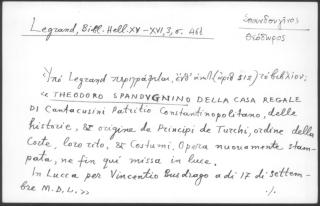 Legrand, Bibl. Hell. XV-XVI, 3, σ. 461
Σπανδουγῖνος
Θεόδωρος
Ὑπὸ Legrand περιγράφεται, ἔνθ' ἀνωτ. τὸ βιβλίον:
« THEODORO SPANDUGNINO DELLA CASA REGALE
DI Cantacusini Patritio Constantinopolitano, delle
historie, & origine de Principi de Turchi, ordine della
Corte, loro rito, & Costumi. Opera nuovamente stam-
pata, ne fin qui missa in luce.
In Lucca per Vincentio Busdrago a di 17 di settem-
bre M.D.L.»